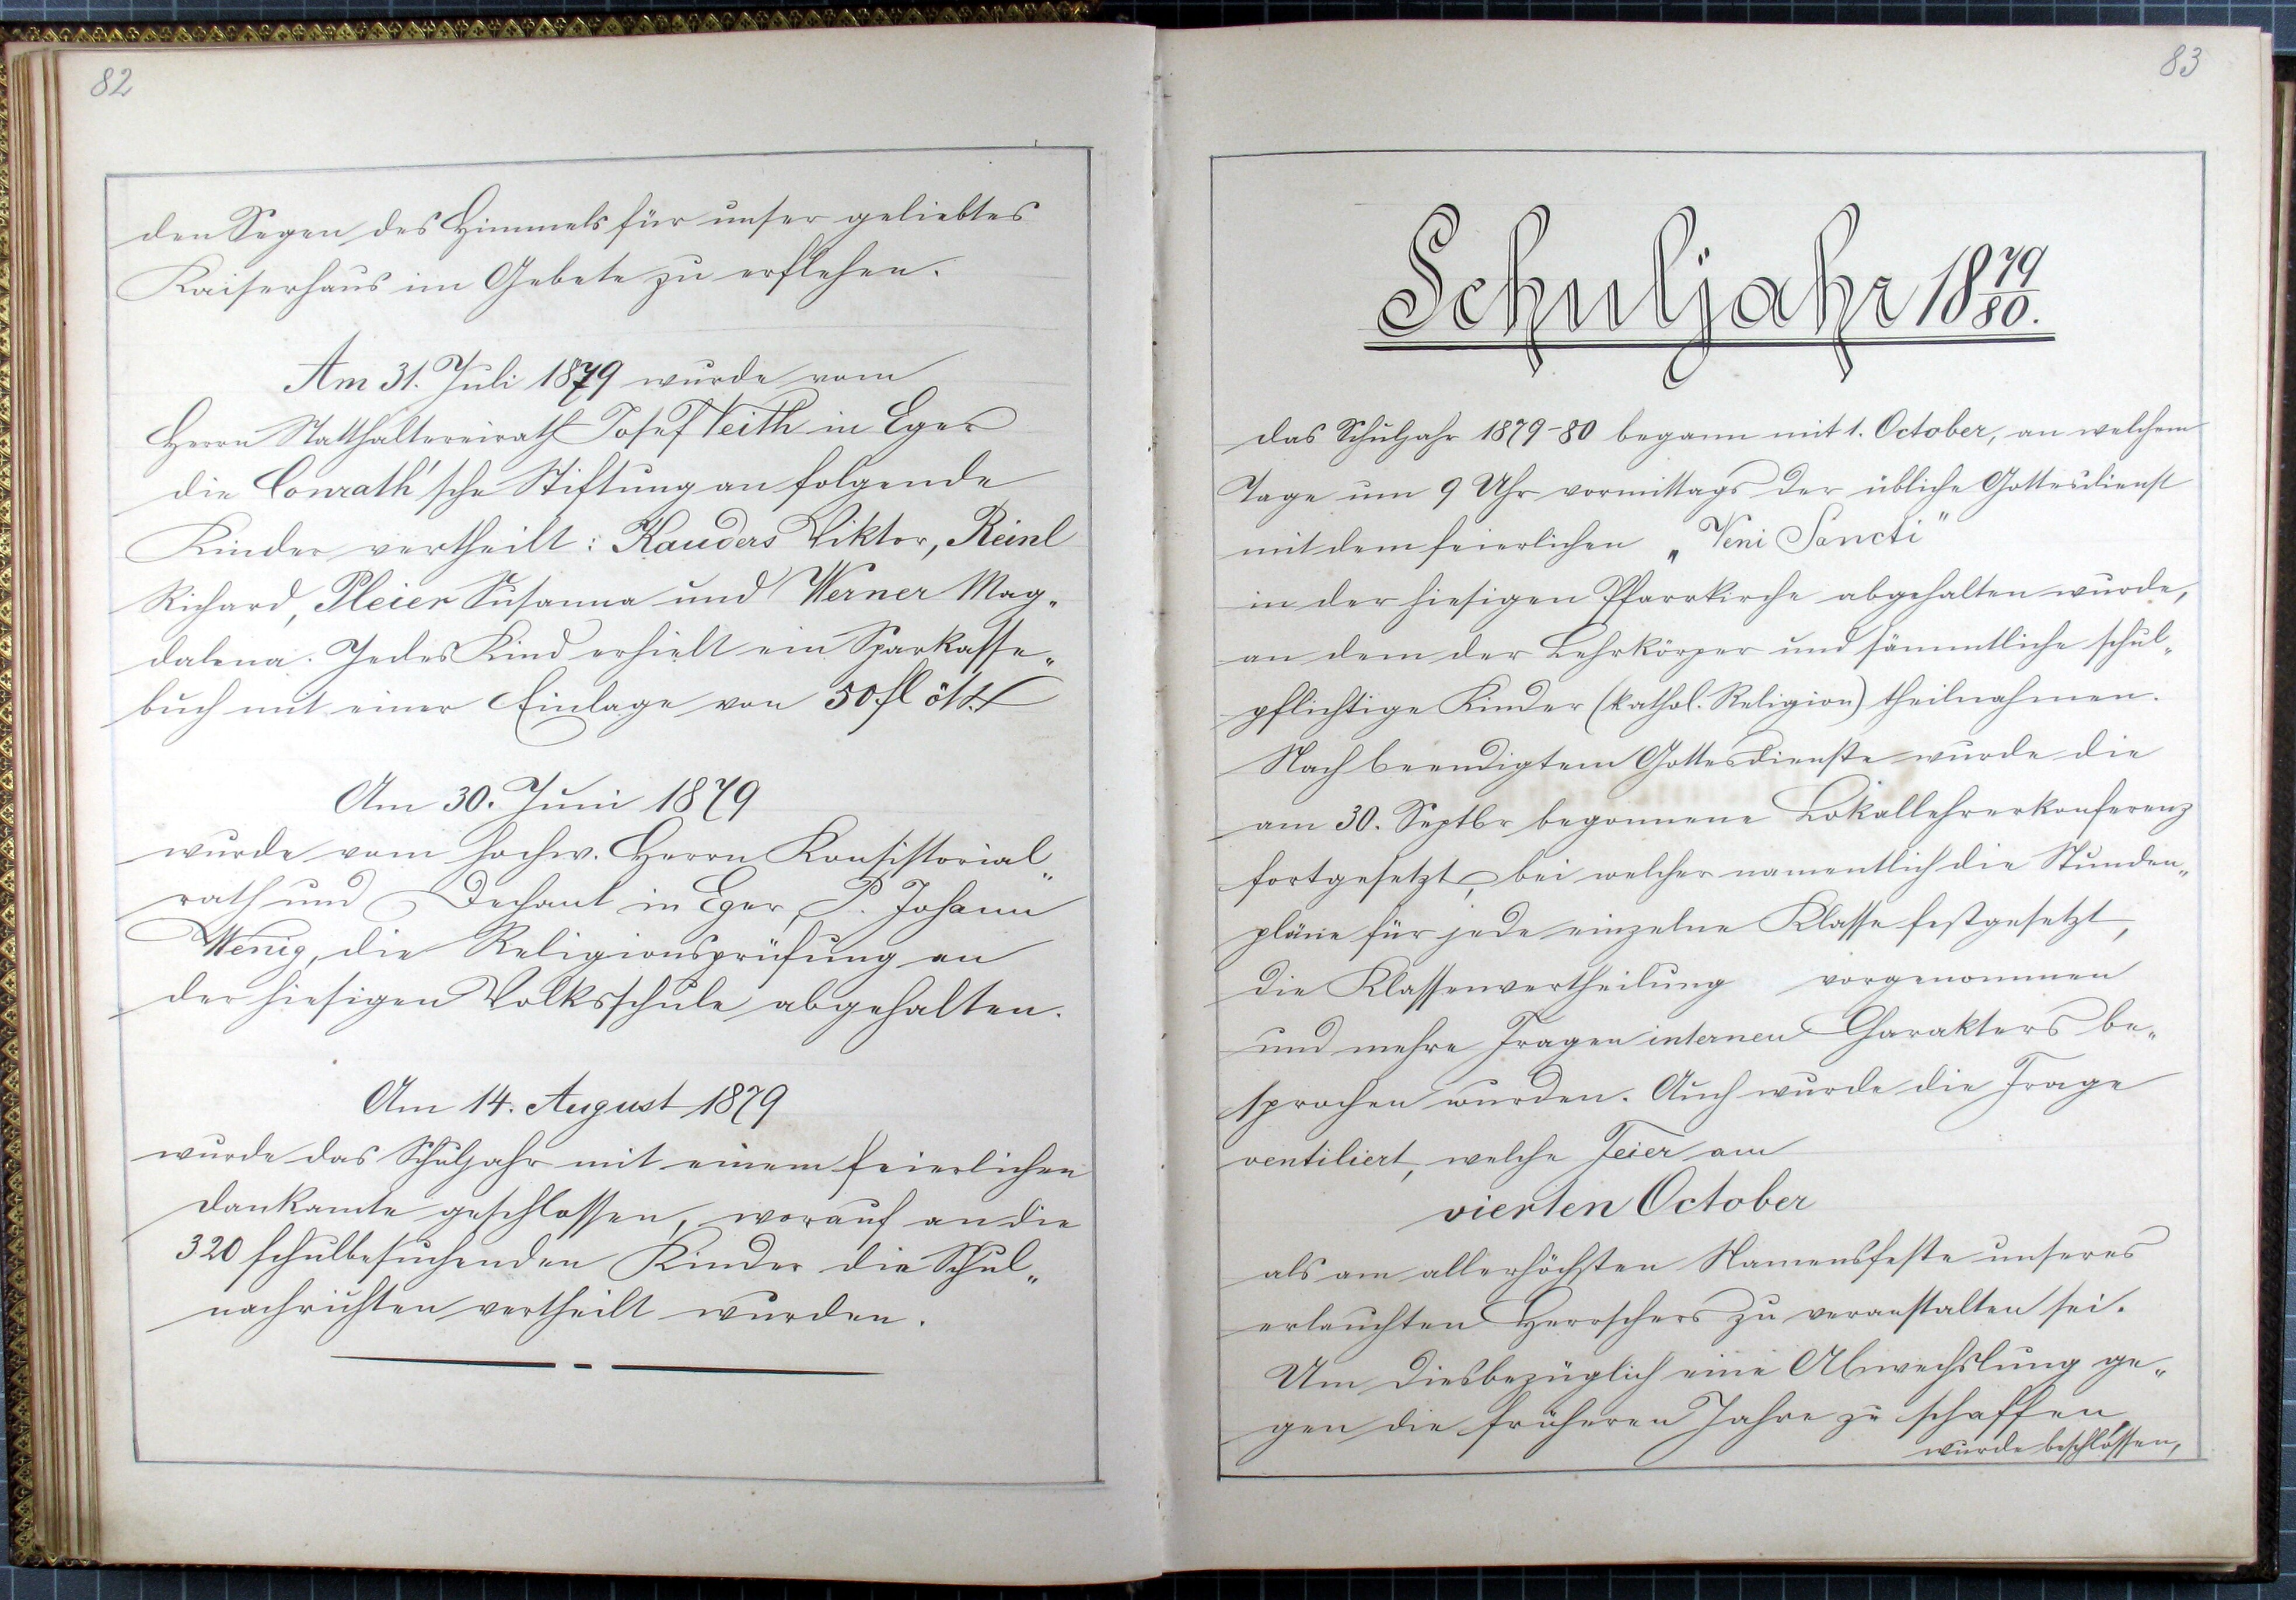 82
den Segen des Himmels für unser geliebtes
Kaiserhaus im Gebete zu erflehen.
Am 31. Juli 1879 wurde vom
Herrn Statthaltereirath Josef Veith in Eger
die Conrath'sche Stiftung an folgende
Kinder vertheilt: Kauders Viktor, Reinl
Richard, Pleier Susanna und Werner Mag„
dalena. Jedes Kind erhielt ein Sparkasse„
buch mit einer Einlage von 50 fl
Am 30. Juni 1879
wurde vom hochw. Herrn Konsistorial„
rath und Dechant in Eger, P. Johann
Wenig, die Religionsprüfung an
der hiesigen Volksschule abgehalten.
Am 14. August 1879
wurde das Schuljahr mit einem feierlichen
Dankamte geschlossen, worauf an die
320 schulbesuchenden Kinder die Schul„
nachrichten vertheilt wurden.
83
Schuljahr 1879/80.
Das Schuljahr 1879-80 begann mit 1. October, an welchem
Tage um 9 Uhr vormittags der übliche Gottesdienst
mit dem feierlichen „Veni Sancti"
in der hiesigen Pfarrkirche abgehalten wurde,
an dem der Lehrkörper und sämmtliche schul„
pflichtige Kinder (kathol. Religion) theilnahmen.
Nach beendigtem Gottesdienste wurde die
am 30. Septbr begonnene Lokallehrerkonferenz
fortgesetzt, bei welcher namentlich die Stunden„
pläne für jede einzelne Klasse festgesetzt,
die Klassenvertheilung vorgenommen
und mehre Fragen internen Charakters be„
sprochen wurden. Auch wurde die Frage
ventiliert, welche Feier am
vierten October
als am allerhöchsten Namensfeste unseres
erlauchten Herrschers zu veranstalten sei.
Um diesbezüglich eine Abwechslung ge„
gen die früheren Jahre zu schaffen,
wurde beschlossen,